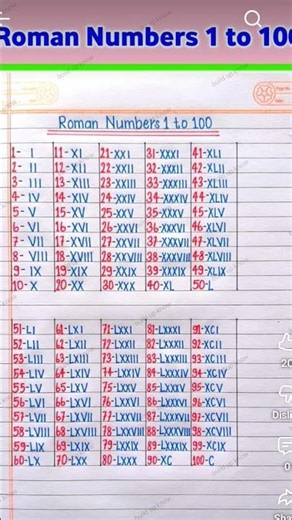 Roman Numbers 1 to 100
Roman Numbers 1 to 100
1- I 11- XI 21-XXI 31-XXXI 41-XLI
2- II 12-XII 22-XXII 32-XXXII 42-XLII
3- III 13-XIII 23-XXIII 33-XXXIII 43-XLIII
4- IV 14-XIV 24-XXIV 34-XXXIV 44-XLIV
5- V 15-XV 25-XXV 35-XXXV 45-XLV
6- VI 16-XVI 26-XXVI 36-XXXVI 46-XLVI
7- VII 17-XVII 27-XXVII 37-XXXVII 47-XLVII
8- VIII 18-XVIII 28-XXVIII 38-XXXVIII 48-XLVIII
9- IX 19-XIX 29-XXIX 39-XXXIX 49-XLIX
10- X 20-XX 30-XXX 40-XL 50-L
51-LI 61-LXI 71-LXXI 81-LXXXI 91-XCI
52-LII 62-LXII 72-LXXII 82-LXXXII 92-XCII
53-LIII 63-LXIII 73-LXXIII 83-LXXXIII 93-XCIII
54-LIV 64-LXIV 74-LXXIV 84-LXXXIV 94-XCIV
55-LV 65-LXV 75-LXXV 85-LXXXV 95-XCV
56-LVI 66-LXVI 76-LXXVI 86-LXXXVI 96-XCVI
57-LVII 67-LXVII 77-LXXVII 87-LXXXVII 97-XCVII
58-LVIII 68-LXVIII 78-LXXVIII 88-LXXXVIII 98-XCVIII
59-LIX 69-LXIX 79-LXXIX 89-LXXXIX 99-XCIX
60-LX 70-LXX 80-LXXX 90-XC 100-C